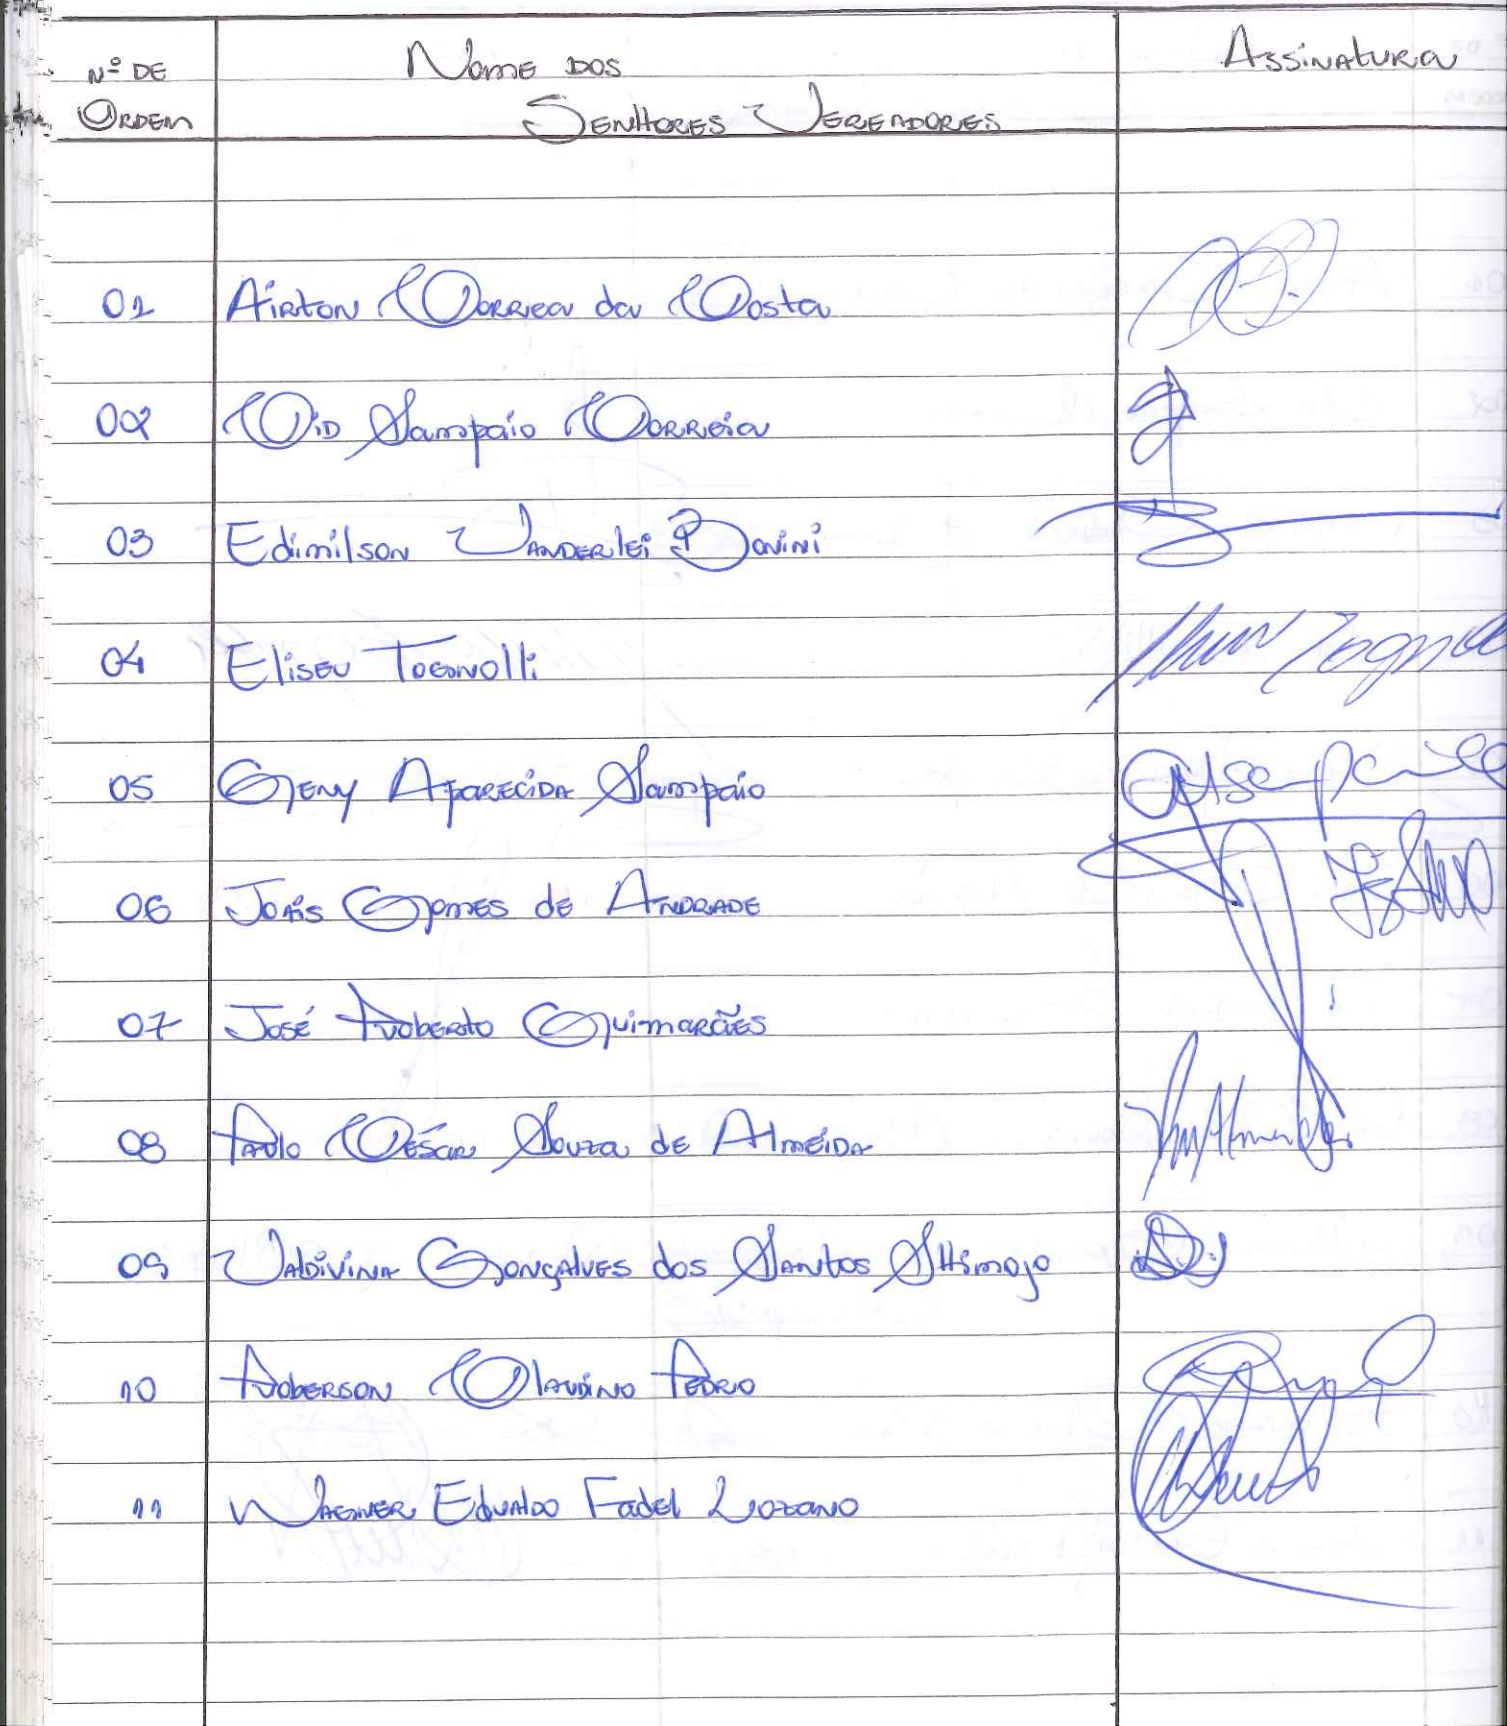 Nº DE Nome dos Assinatura
Ordem Senhores Vereadores
01 Airton Correa da Costa
02 Cid Sampaio Correia
03 Edimilson Vanderlei Bonini
04 Eliseu Tognolli
05 Geny Aparecida Sampaio
06 Joás Gomes de Andrade
07 José Roberto Guimarães
08 Paulo César Souza de Almeida
09 Valdivina Gonçalves dos Santos Shimojo
10 Roberson Claudino Pedro
11 Wagner Edualdo Fadel Lozano